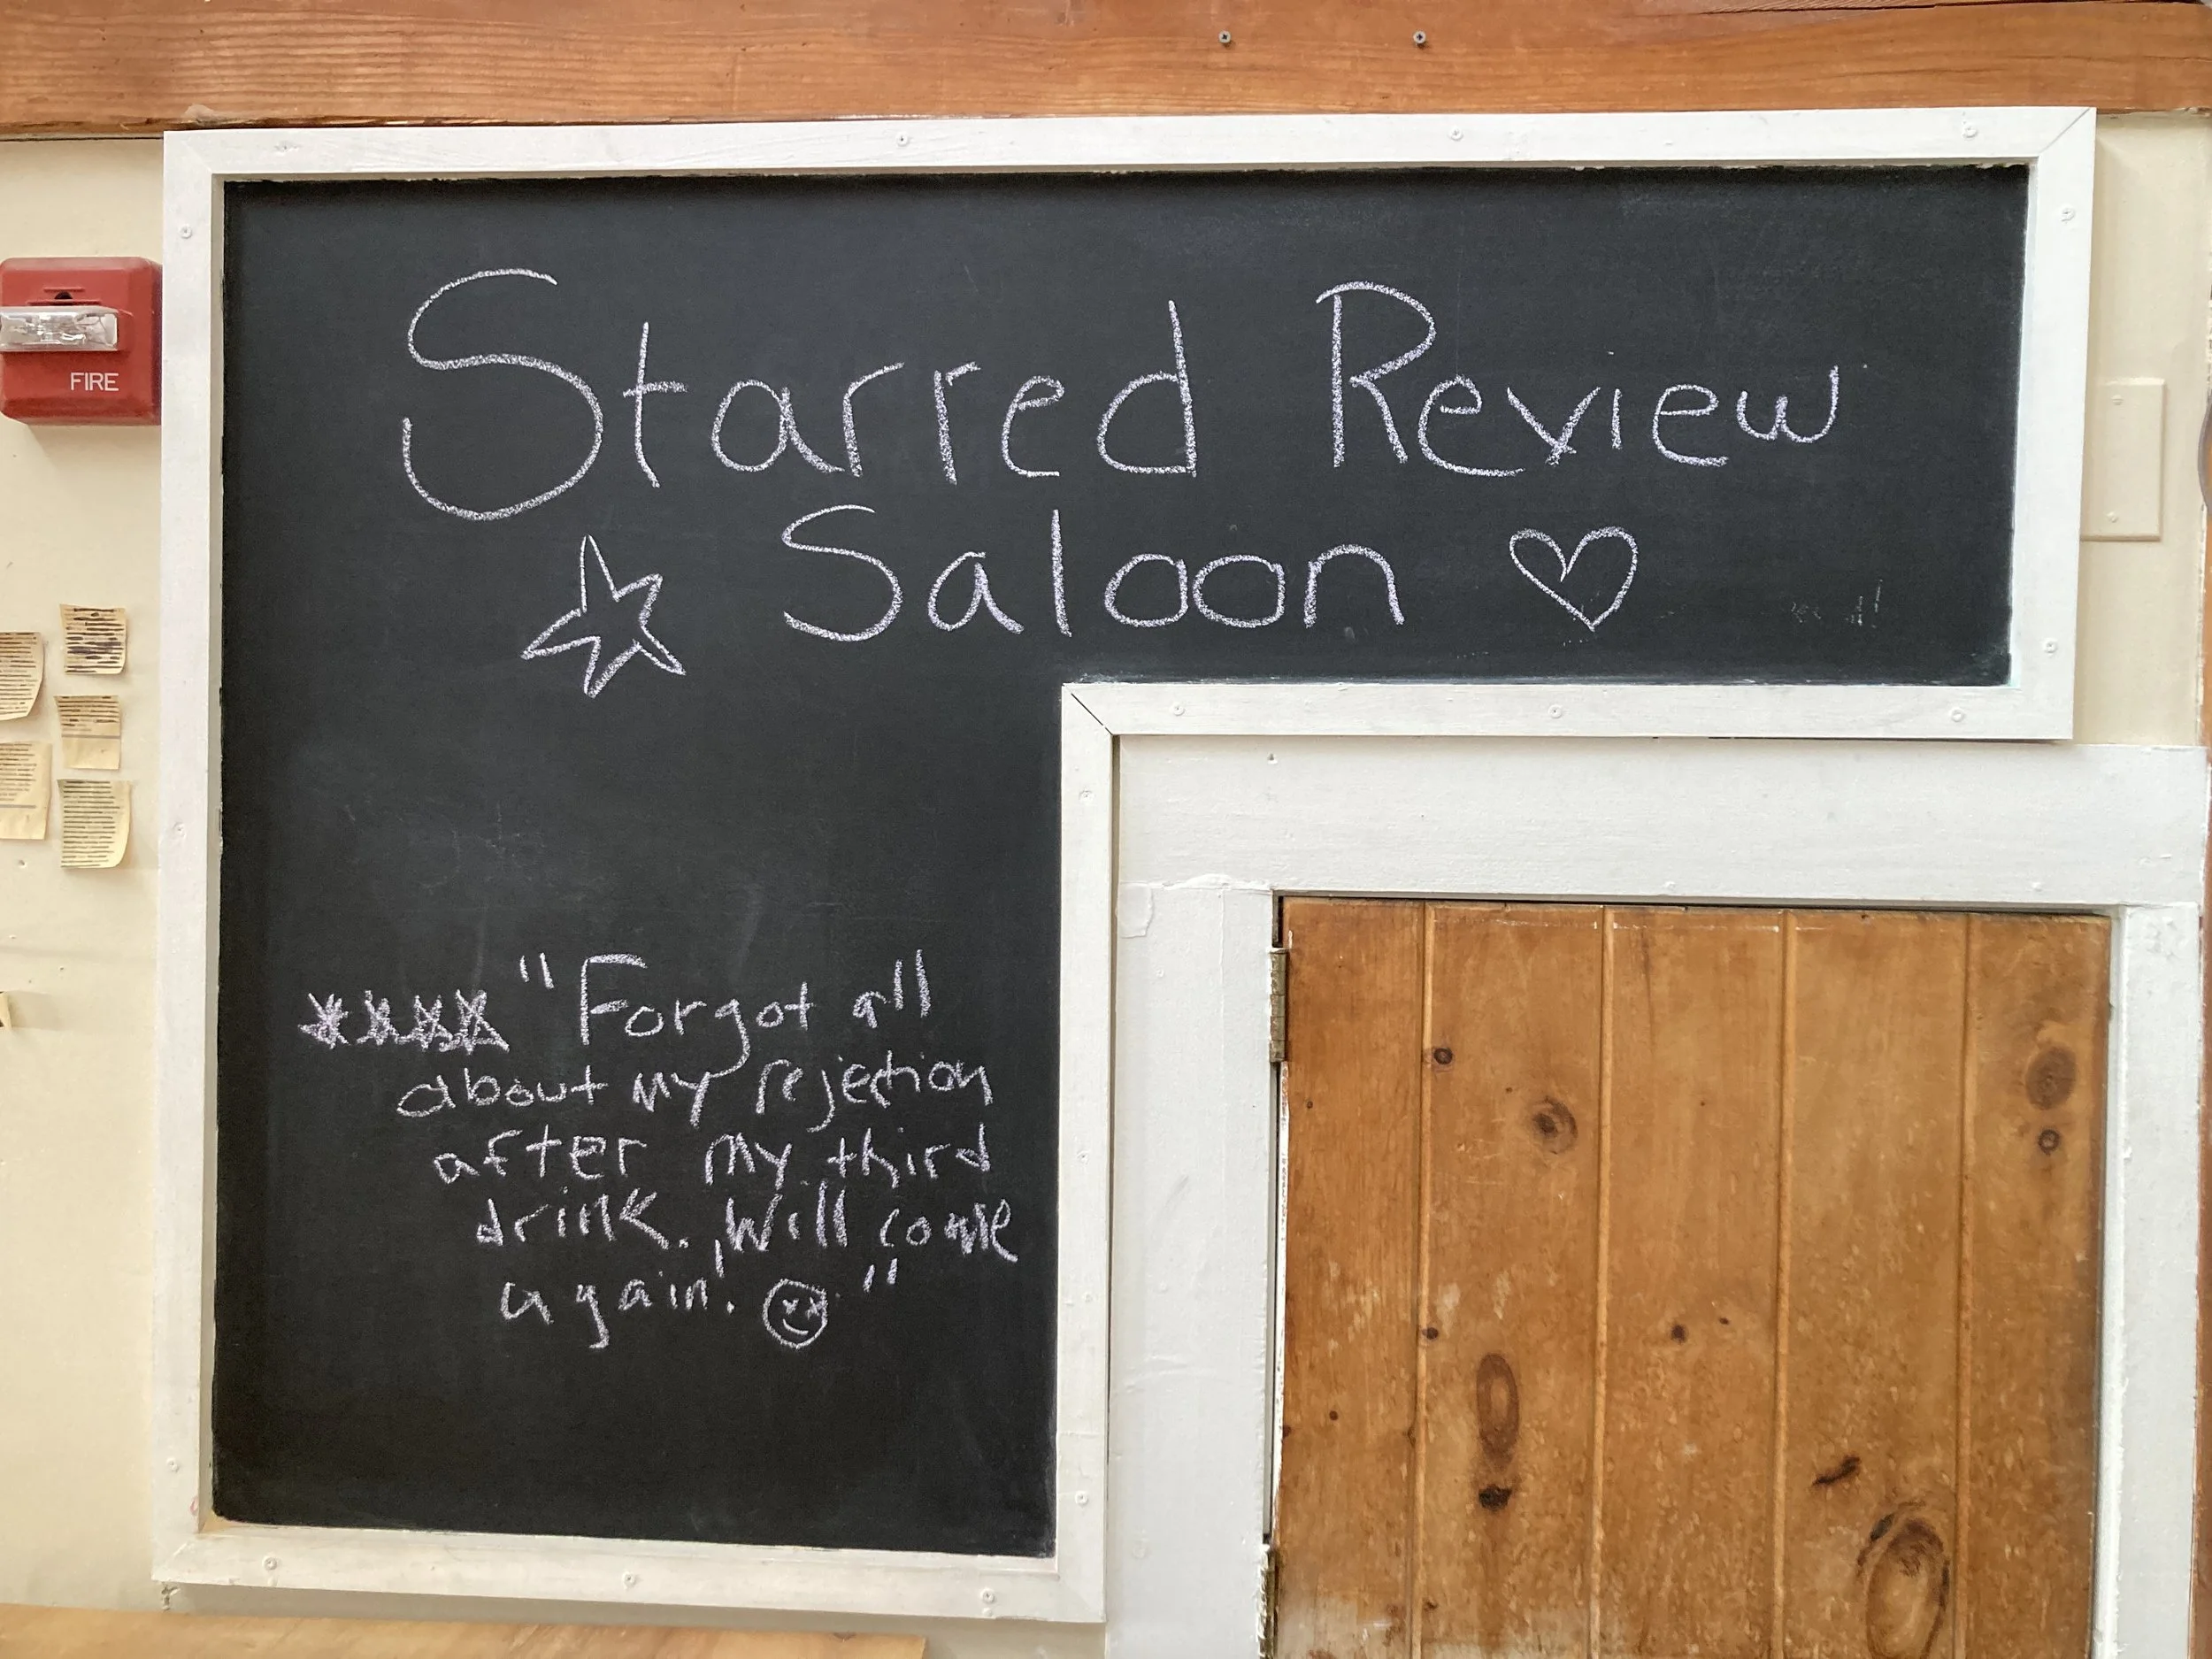 Starred Review
Saloon
FIRE
"Forgot all
about my rejection
after my third
drink. Will come
again."